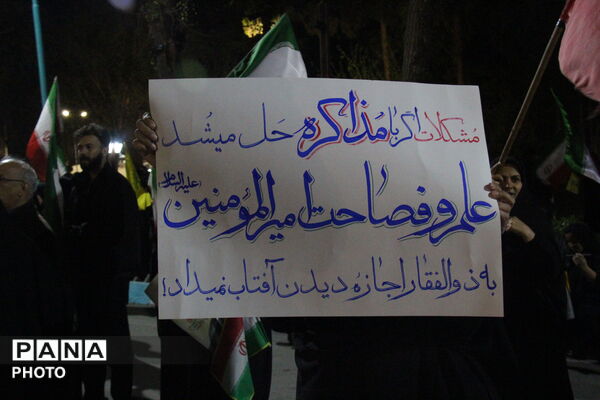 مشکلات اگر با مذاکره حل میشُد
علم و فصاحت امیرالمؤمنین (علیه‌السلام)
به ذوالفقار اجازهٔ دیدن آفتاب نمیداد!
PANA
PHOTO